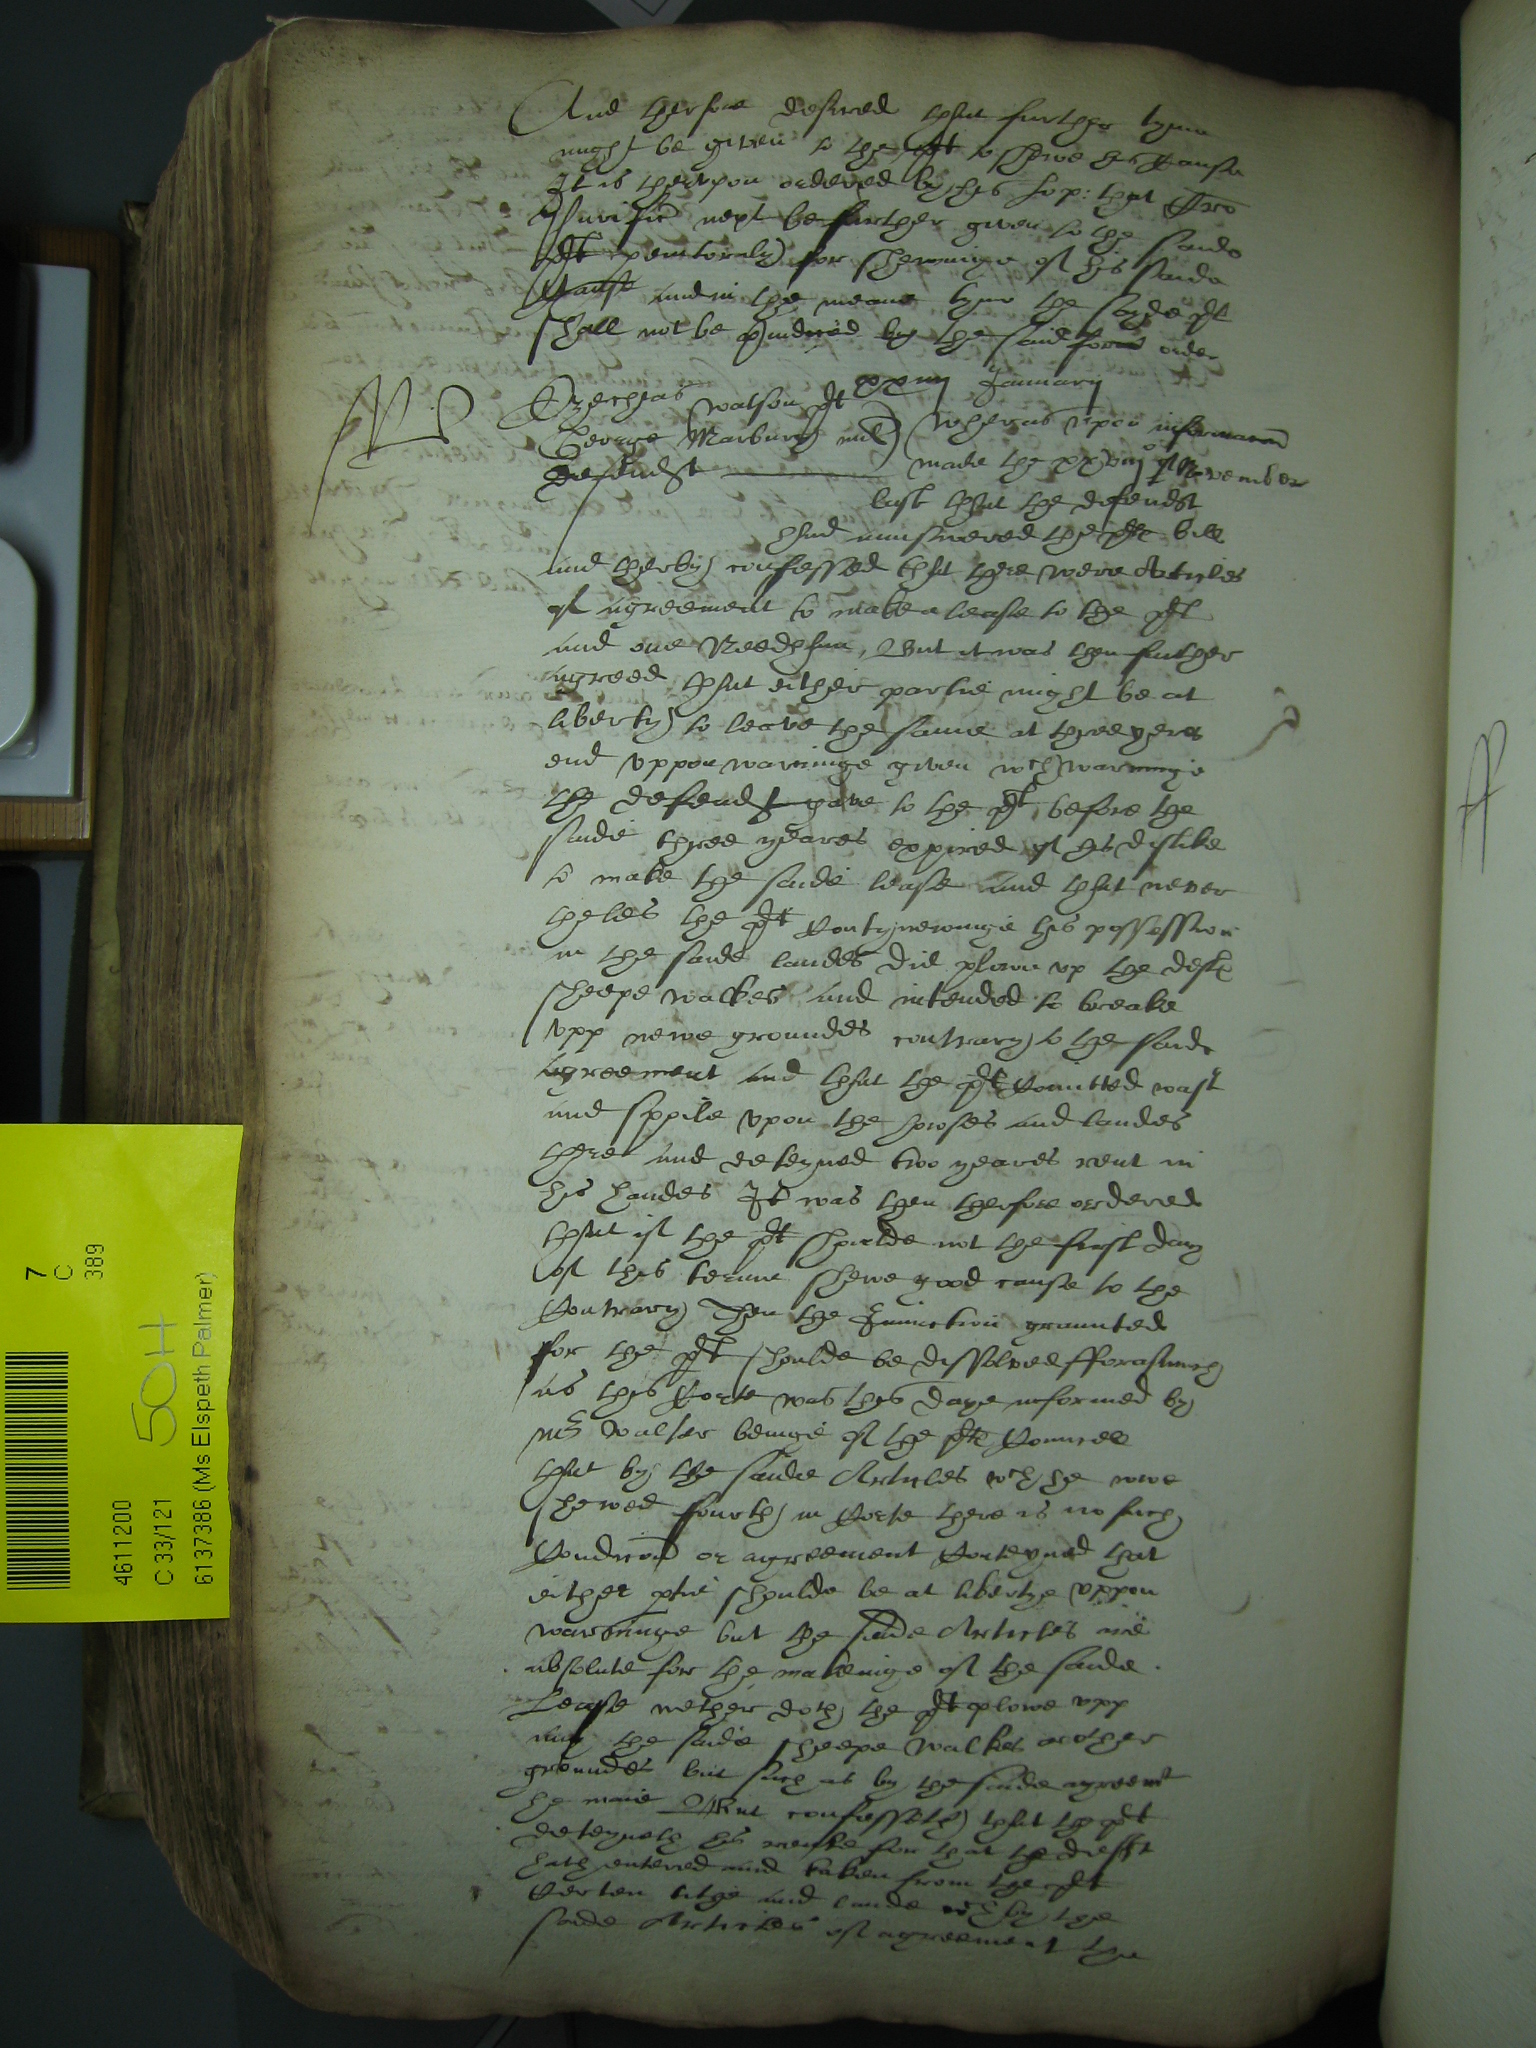 And therfore desired that further tyme
might be given to the plt to shewe his Cause
It is therupon ordered by his Lop: that Cro
Purific next be further given to the saide
plt pemtoraly for shewinge of his saide
Cause and in the meane tyme the sayde plt
shall not be piudiced by the said former order
xxiiij January
Ezechias Watson plt
George Marbury
defendt
Wheras upon informacon
made the xxviij of November
last that the defendt
had aunswered the plts bill
and therby confessed that there were Articles
of agreement to make a lease to the plt
and one Needham, But it was then further
agreed that either partie might be at
liberty to leave the same at three yeres
end uppon warninge given wch warninge
the defendt gave to the plt before the
saide three yeares expired of his dislike
to make the saide lease and that never
theles the plt Contynewinge his possession
in the saide landes did plowe up the defts
sheepe walkes and intended to breake
upp newe groundes contrary to the saide
agreement and that the plt Comitted wast
and spoile upon the howses and landes
there and deteyned two yeares rent in
his handes It was then therfore ordered
that if the plt shoulde not the first day
of this terme shewe good cause to the
Contrary Then the Iniunction graunted
for the plt shoulde be dissolved fforasmuch
as this Corte was this daye informed by
Mr Walter beinge of the plts Councell
that by the saide Articles wch he nowe
shewed fourth in Corte there is no such
Condicon or agreement Conteyned that
either ptie shoulde be at libertye uppon
warninge but the saide Articles are
absolute for the makeinge of the saide
Lease nether doth the plt plowe upp
any the saide sheepe walkes or other
groundes but such as by the saide agreemt
he maie But confesseth that the plt
deteyneth his rente for that the defft
hath entered and taken from the plt
Certen tithe and lande wch by the
saide Articles of agreement the
7
C
389
50H
4611200
C 33/121
6137386 (Ms Elspeth Palmer)